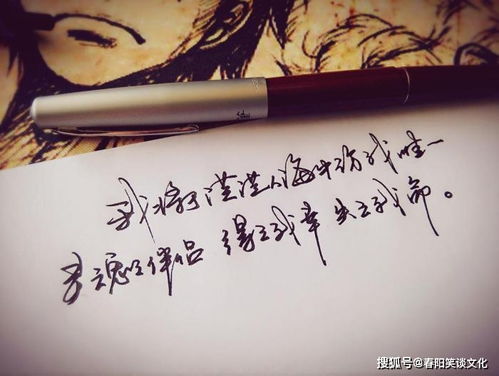 我将于茫茫人海中访我唯一
灵魂之伴侣 得之我幸 失之我命。
搜狐号@春阳笑谈文化